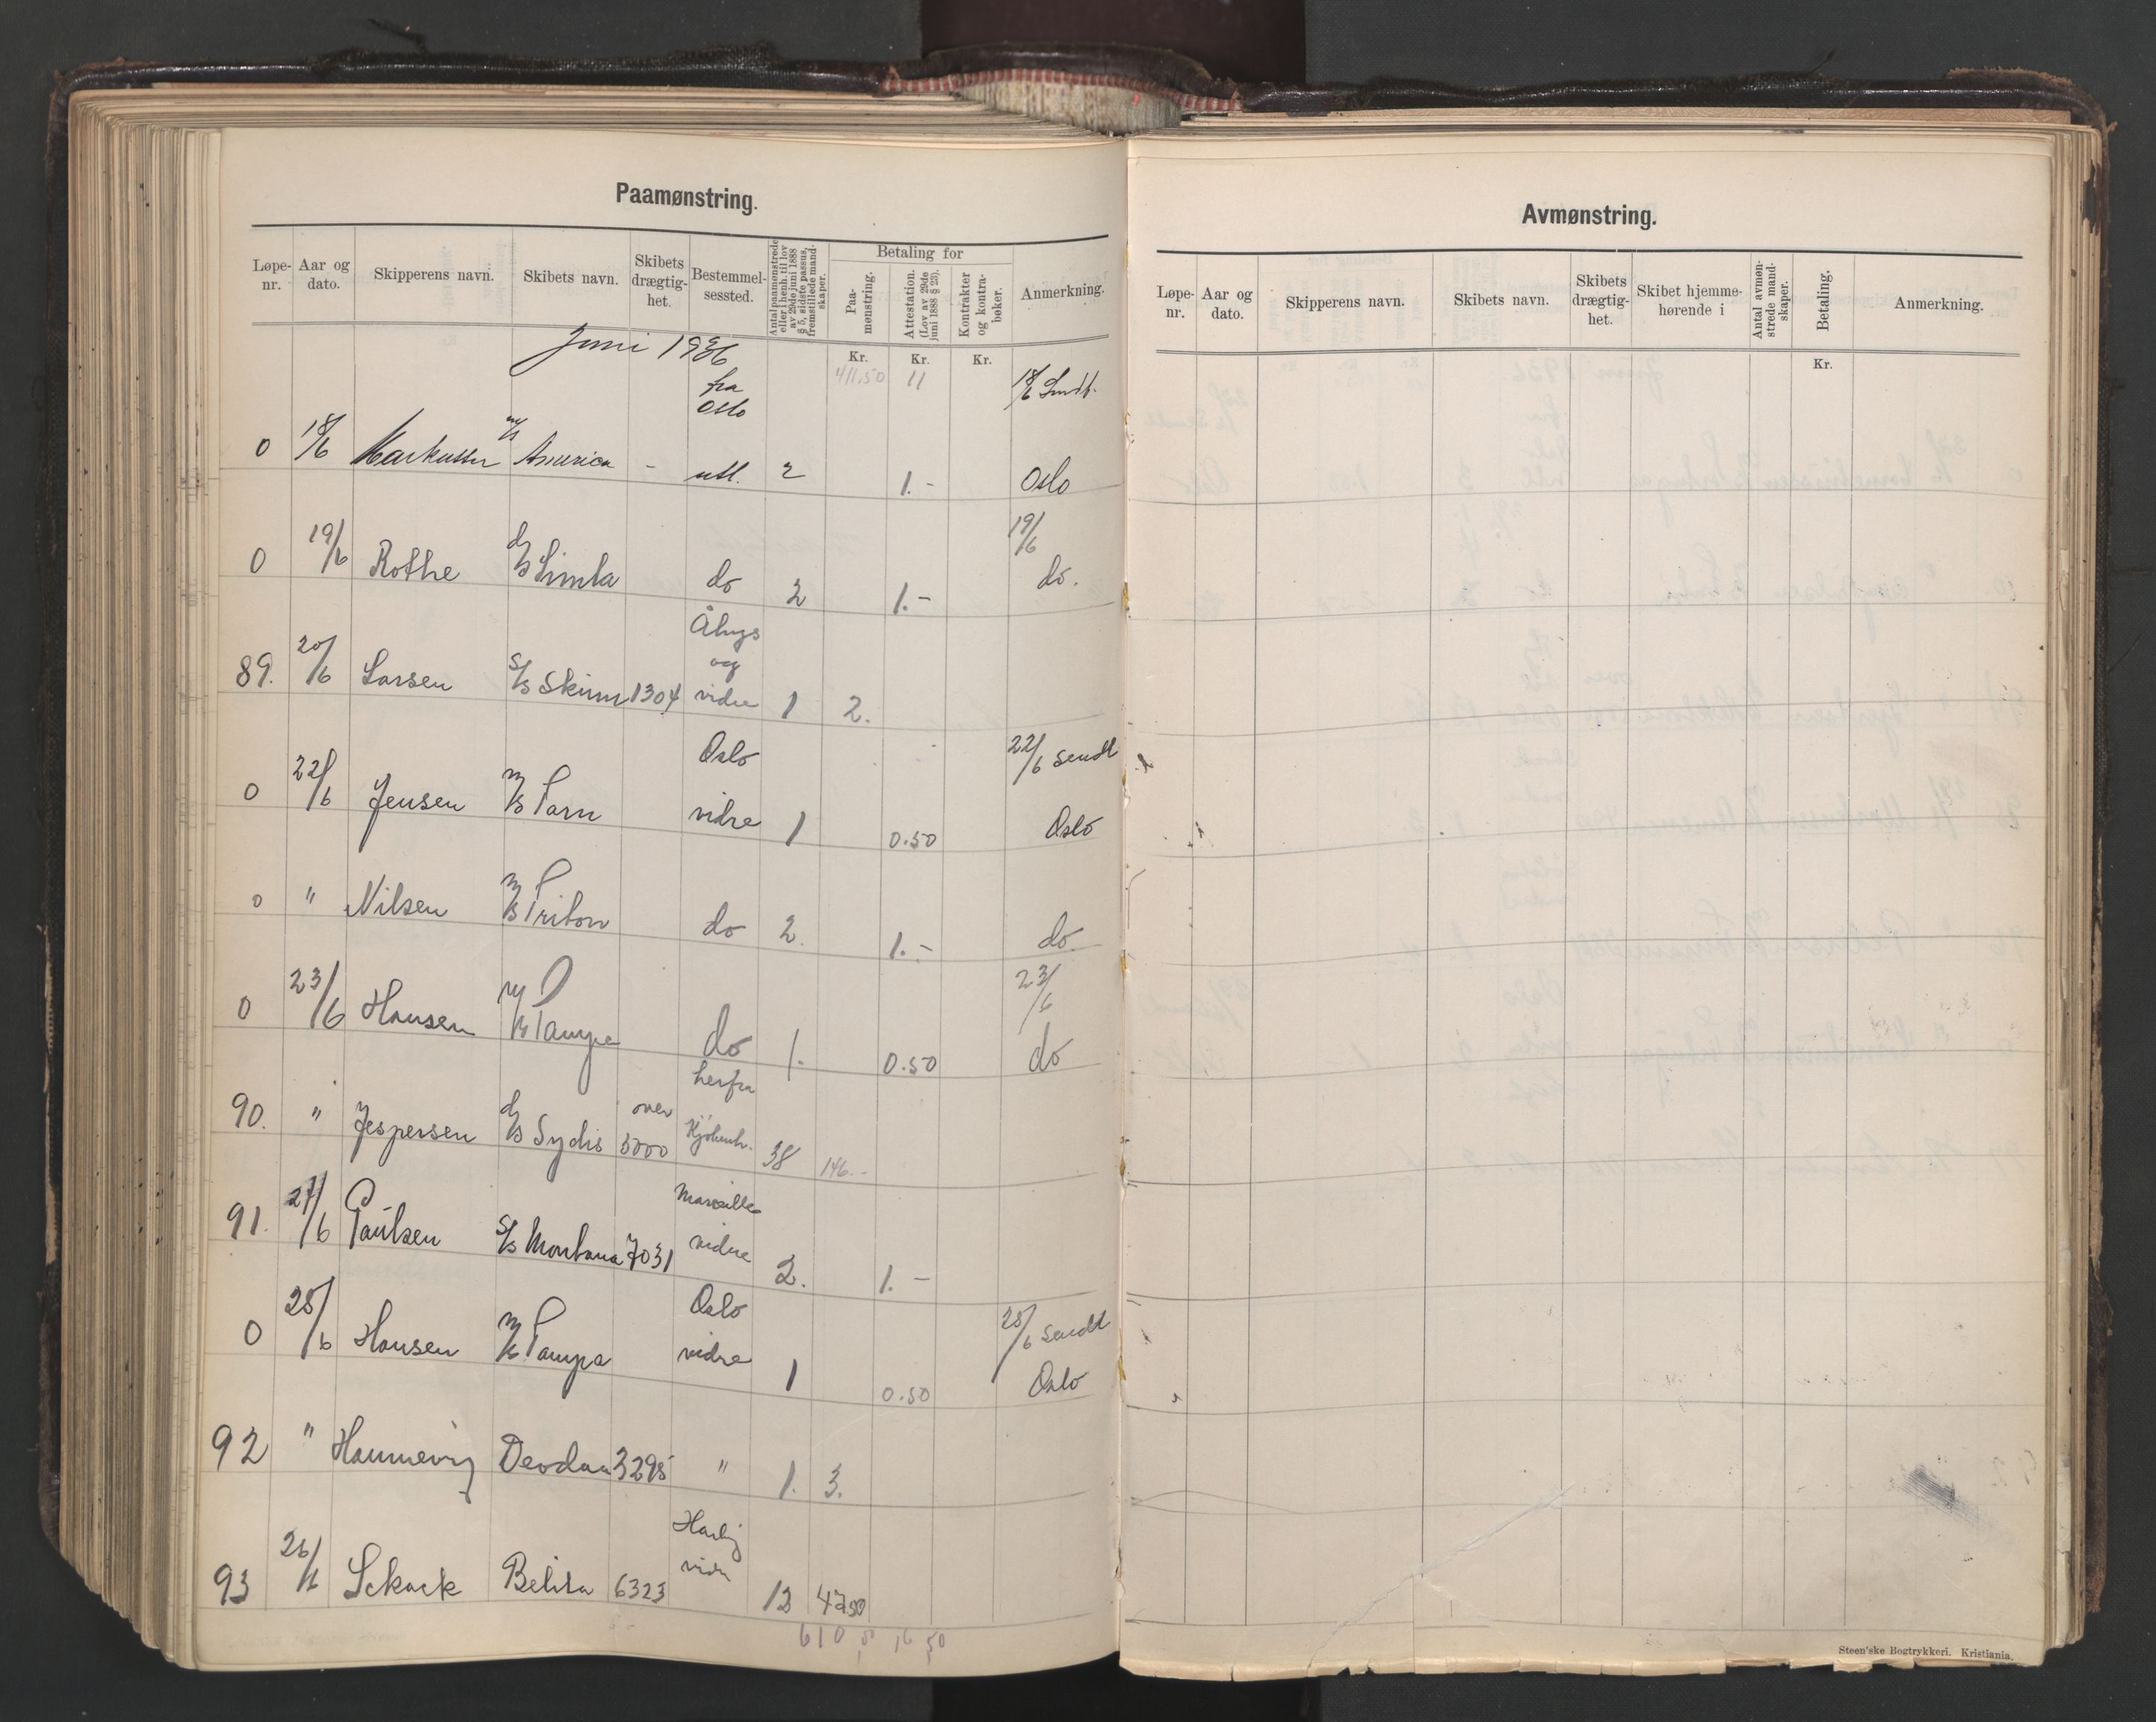 Paamønstring.
Løpe-nr. Aar og dato. Skipperens navn. Skibets navn. Skibets drægtig-het. Bestemmel-sessted. Antal paamønstrede eller i henh. til lov av 29de juni 1888 § 5, sidste passus, fremstillede mand-skaper. Betaling for Paa-mønstring. Attestation. (Lov av 29de juni 1888 § 25). Kontrakter og kontra-bøker. Anmerkning.
Juni 1936
Kr. Kr. Kr.
411.50 11
fra Oslo 18/6 Sendt
0 18/6 Markussen m/s America - utl. 2 1.- Oslo
19/6
0 19/6 Rothe d/s Simla do 2 1.- do.
Åhus og
89. 20/6 Larsen s/s Skrim 1304 vidre 1 2.
Oslo 22/6 sendt
0 22/6 Jensen m/s Tarn vidre 1 0.50 Oslo
0 " Nilsen m/s Triton do 2. 1.- do
23/6
0 23/6 Hansen m/s Tampa do 1. 0.50 do
herfra
90. " Jespersen d/s Sydis over 5000 Kjøbenh. 38 146.-
Marseille
91. 27/6 Paulsen s/s Montana 7031 vidre 2. 1.-
Oslo 25/6 sendt
0 25/6 Hansen m/s Tampa vidre 1 0.50 Oslo
92 " Hannevig 3295 " 1. 3.
93 26/6 Schack Belita 6323 vidre 12 47.50
610.50 16.50
Avmønstring.
Løpe-nr. Aar og dato. Skipperens navn. Skibets navn. Skibets drægtig-het. Skibet hjemme-hørende i Antal avmøn-strede mand-skaper. Betaling. Anmerkning.
Kr.
Steen'ske Bogtrykkeri. Kristiania.